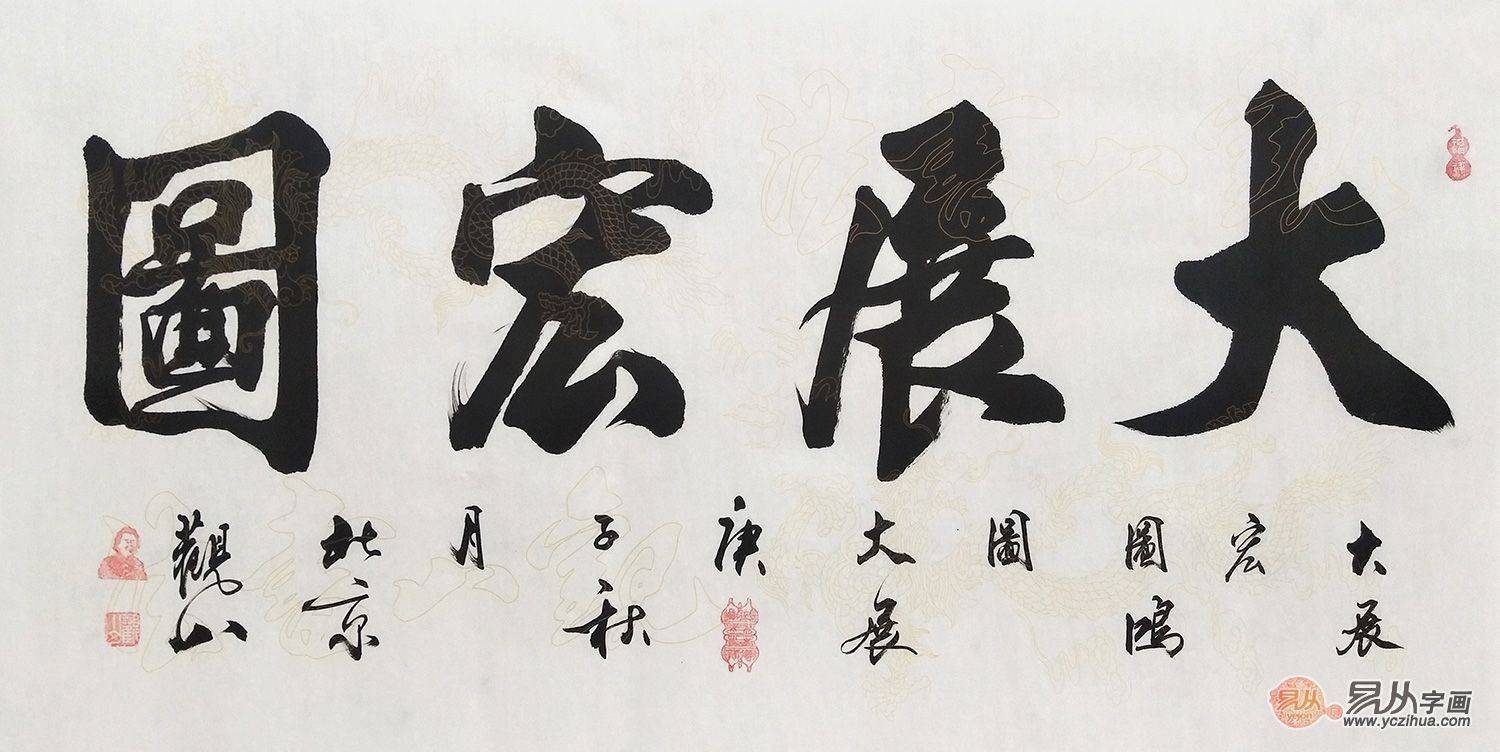 大展宏圖
大展宏圖鴻圖大展庚子秋月北京觀山
易从
易从字画
www.yczihua.com